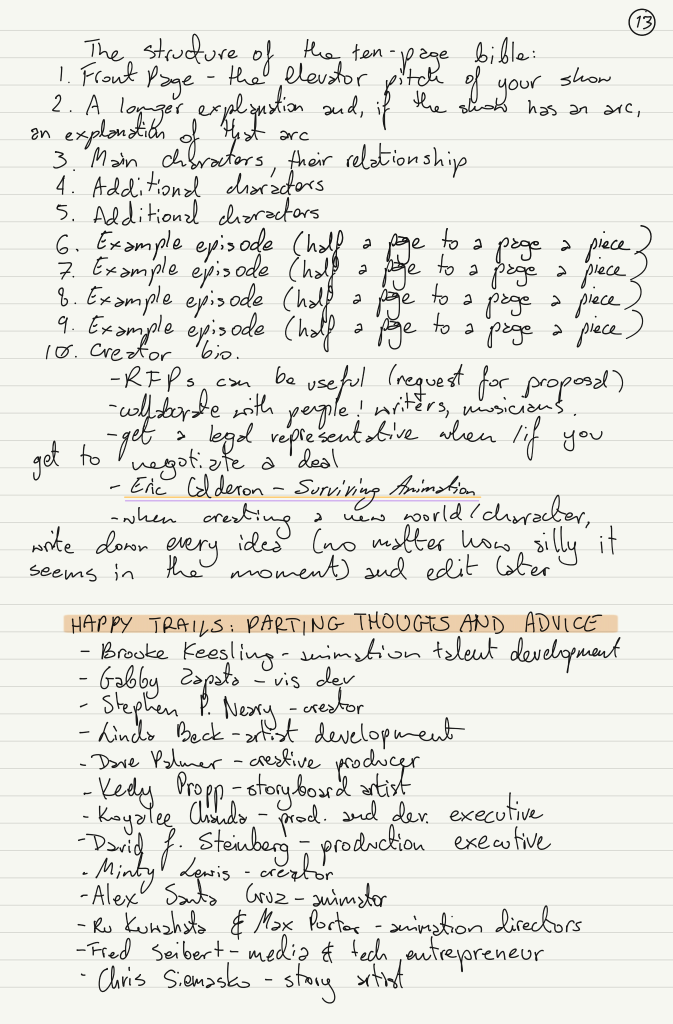 13
The structure of the ten-page bible:
1. Front Page - the elevator pitch of your show
2. A longer explanation and, if the show has an arc,
an explanation of that arc
3. Main characters, their relationship
4. Additional characters
5. Additional characters
6. Example episode (half a page to a page a piece)
7. Example episode (half a page to a page a piece)
8. Example episode (half a page to a page a piece)
9. Example episode (half a page to a page a piece)
10. Creator bio.
-RFPs can be useful (request for proposal)
-collaborate with people! writers, musicians.
-get a legal representative when/if you
get to negotiate a deal
- Eric Calderon - Surviving Animation
-when creating a new world/character,
write down every idea (no matter how silly it
seems in the moment) and edit later
HAPPY TRAILS: PARTING THOUGTS AND ADVICE
- Brooke Keesling - animation talent development
- Gabby Zapata - vis dev
- Stephen P. Neary - creator
- Linda Beck - artist development
- Dave Palmer - creative producer
- Kedy Propp - storyboard artist
- Kayalee Chanda - prod. and dev. executive
- David J. Steinberg - production executive
- Minty Lewis - creator
- Alex Santa Cruz - animator
- Ru Kuwahata & Max Porter - animation directors
- Fred Seibert - media & tech entrepreneur
- Chris Siemasko - story artist